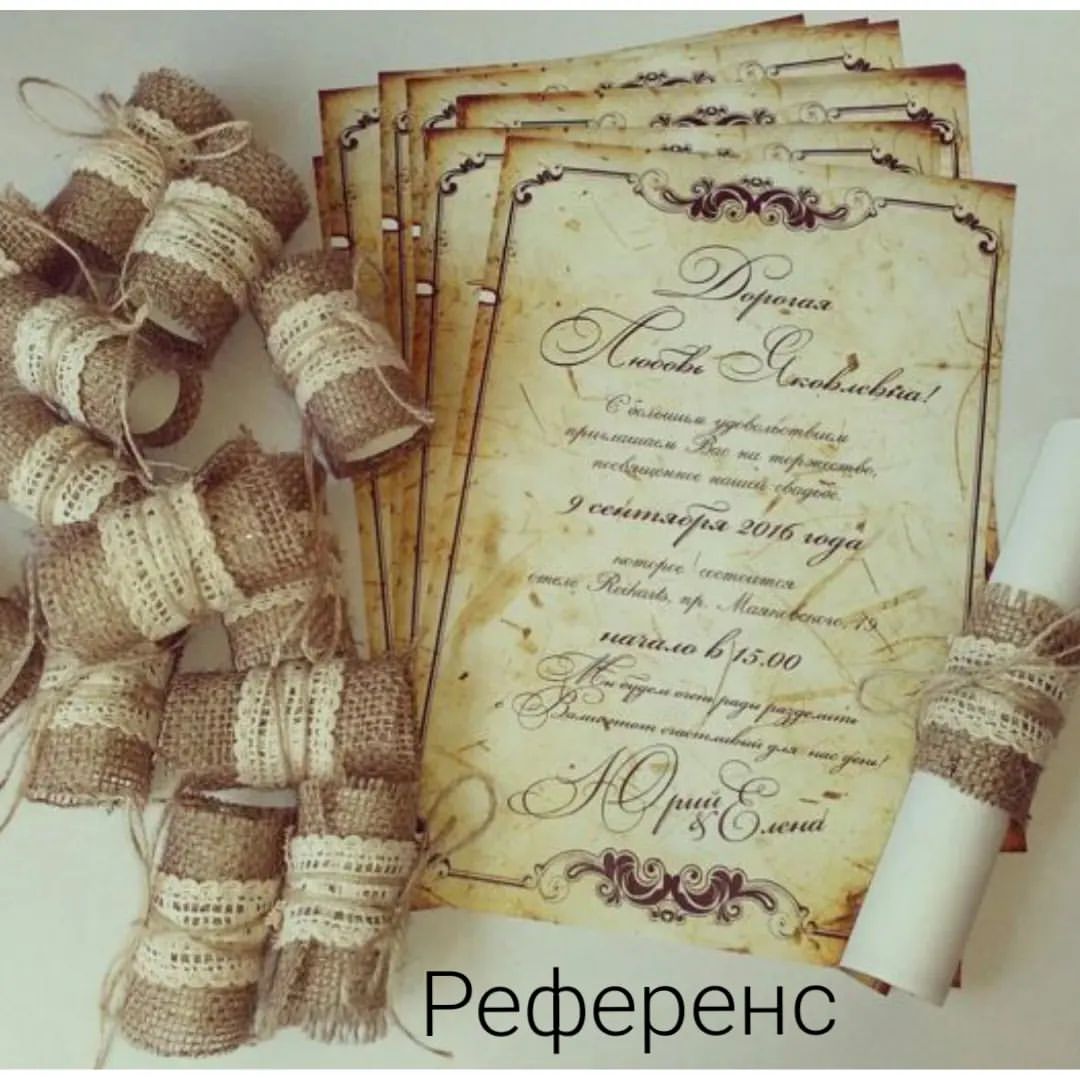 Дорогая
Любовь Яковлевна!
С большим удовольствием
приглашаем Вас на торжество,
посвященное нашей свадьбе,
9 сентября 2016 года
которое состоится
отеле Reikartz, пр. Маяковского, 19
начало в 15.00
Мы будем очень рады разделить
с Вами этот счастливый для нас день!
Юрий
& Елена
Референс